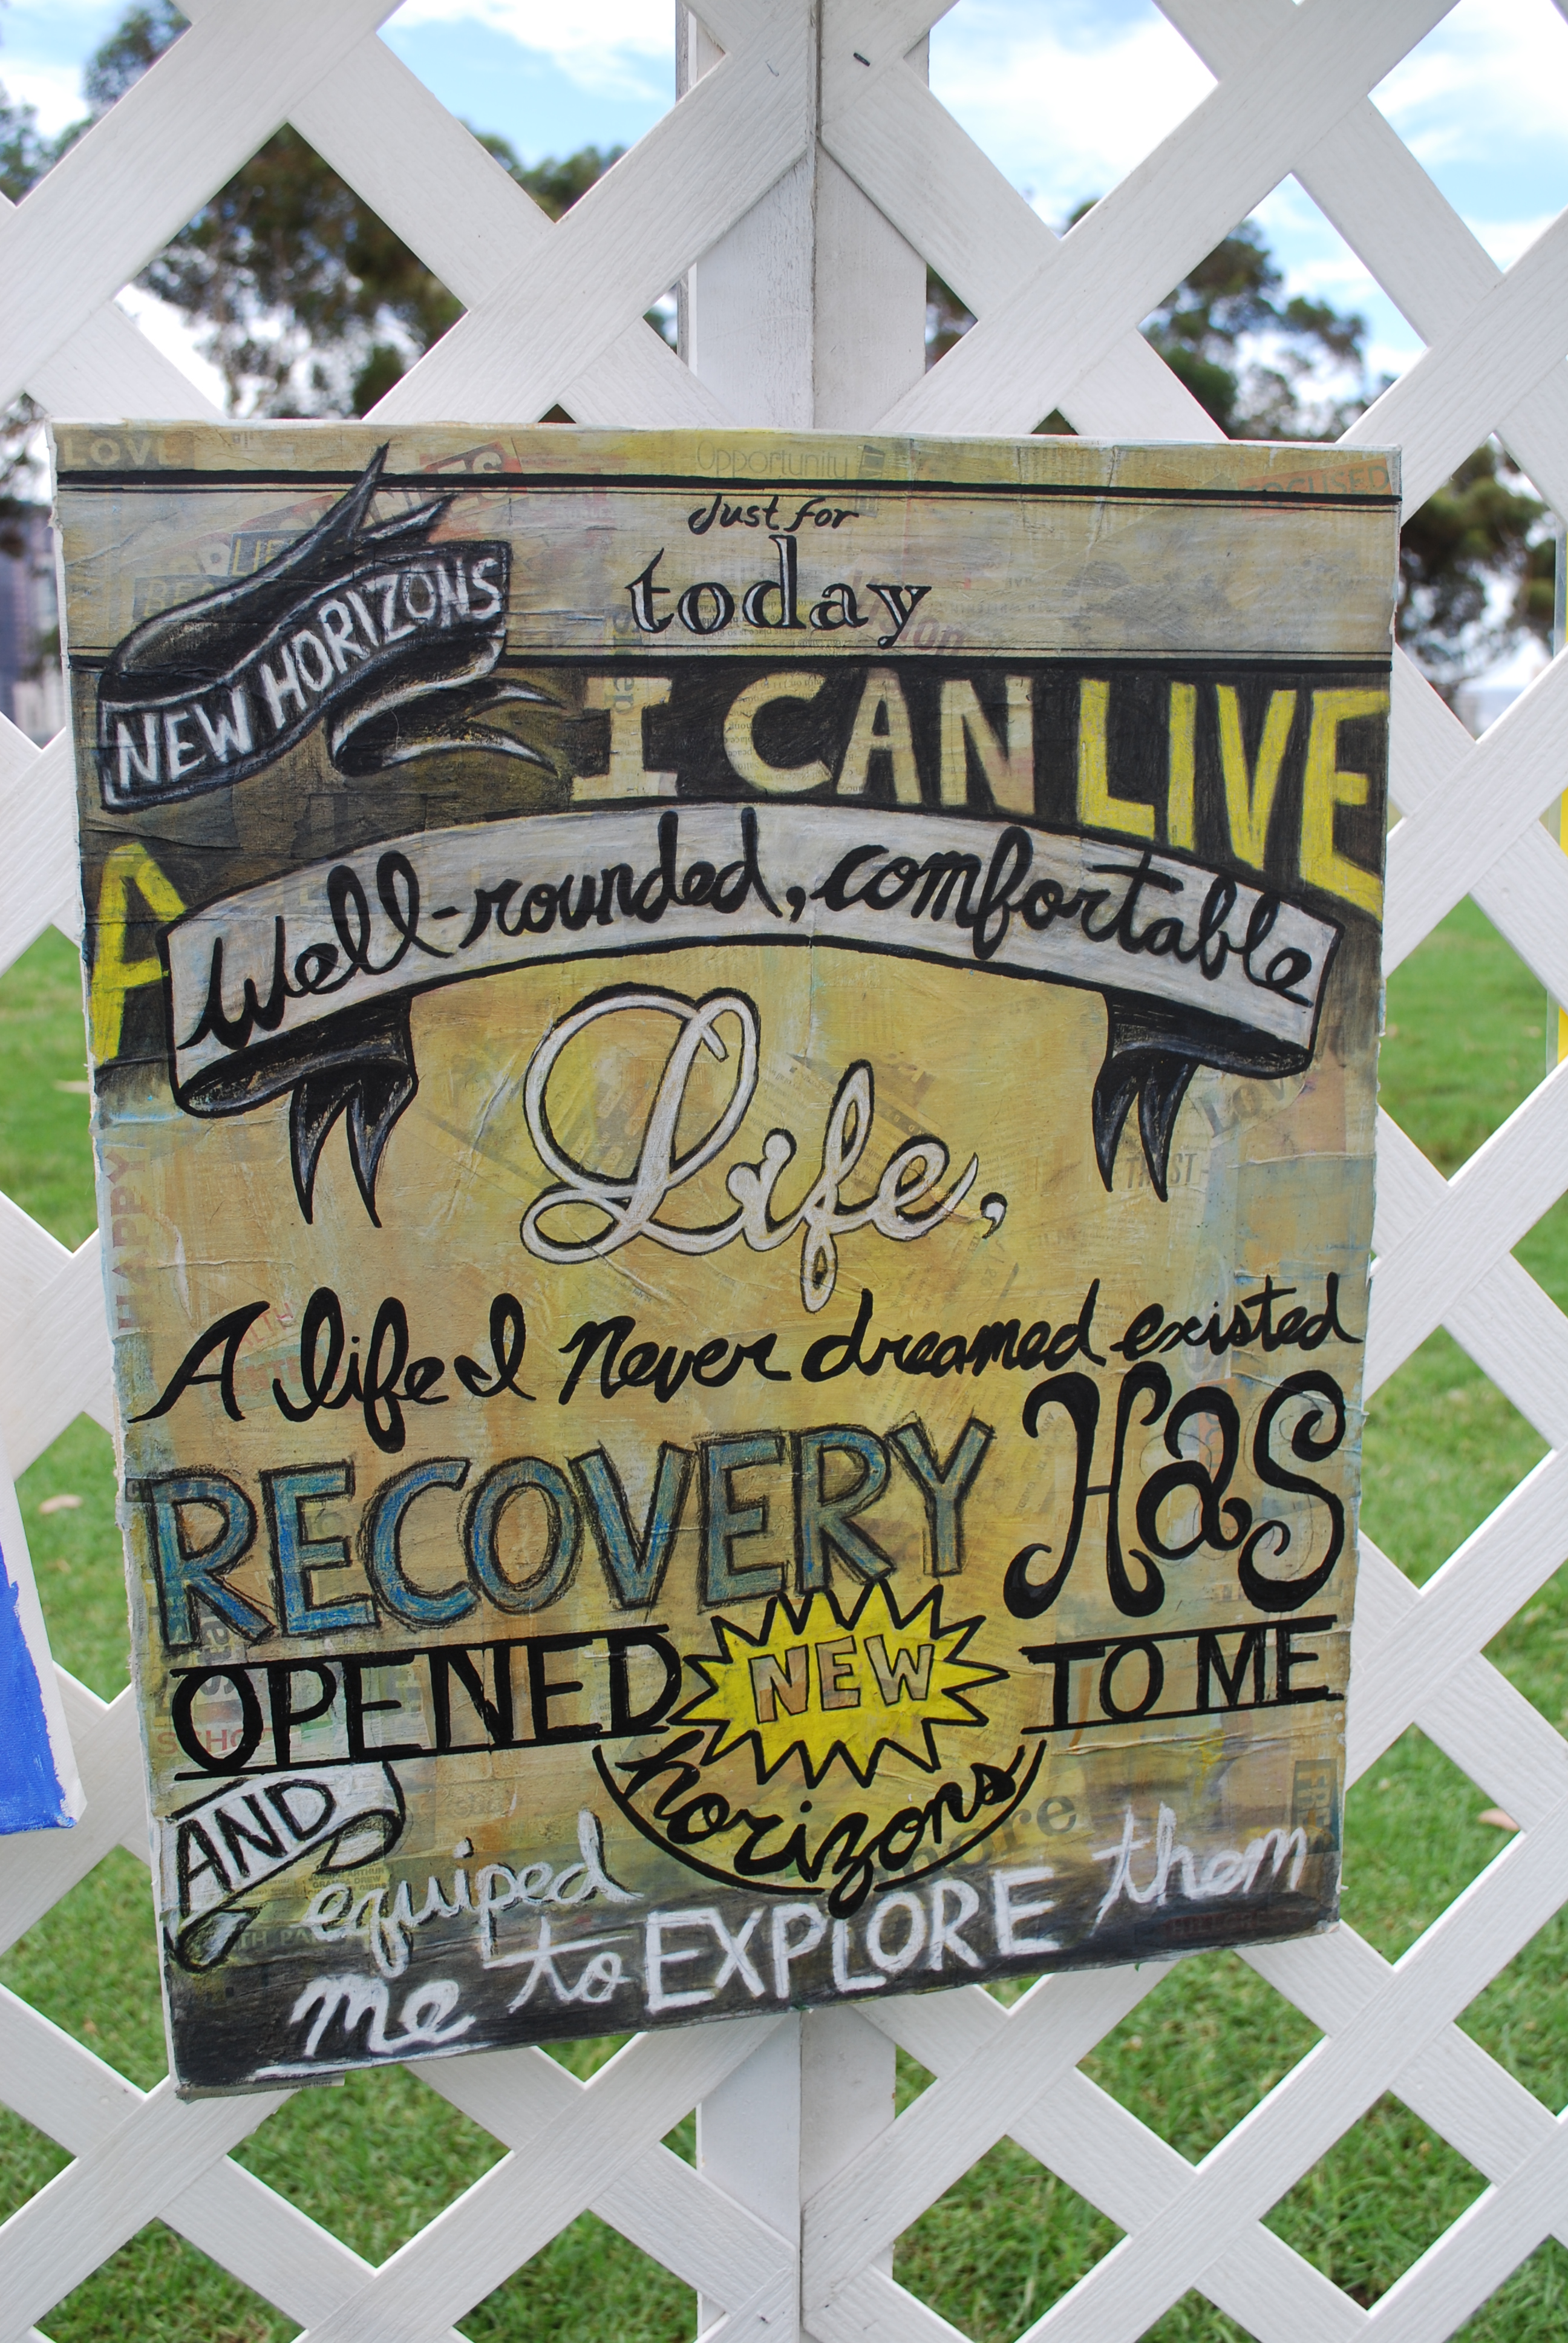 LOVE
Opportunity
Just for
today
NEW HORIZONS
I CAN LIVE
A
Well-rounded, comfortable
Life,
LOVE
TRUST
HAPPY
A life I Never dreamed existed
RECOVERY Has
OPENED NEW TO ME
horizons
AND
equiped
me to EXPLORE them